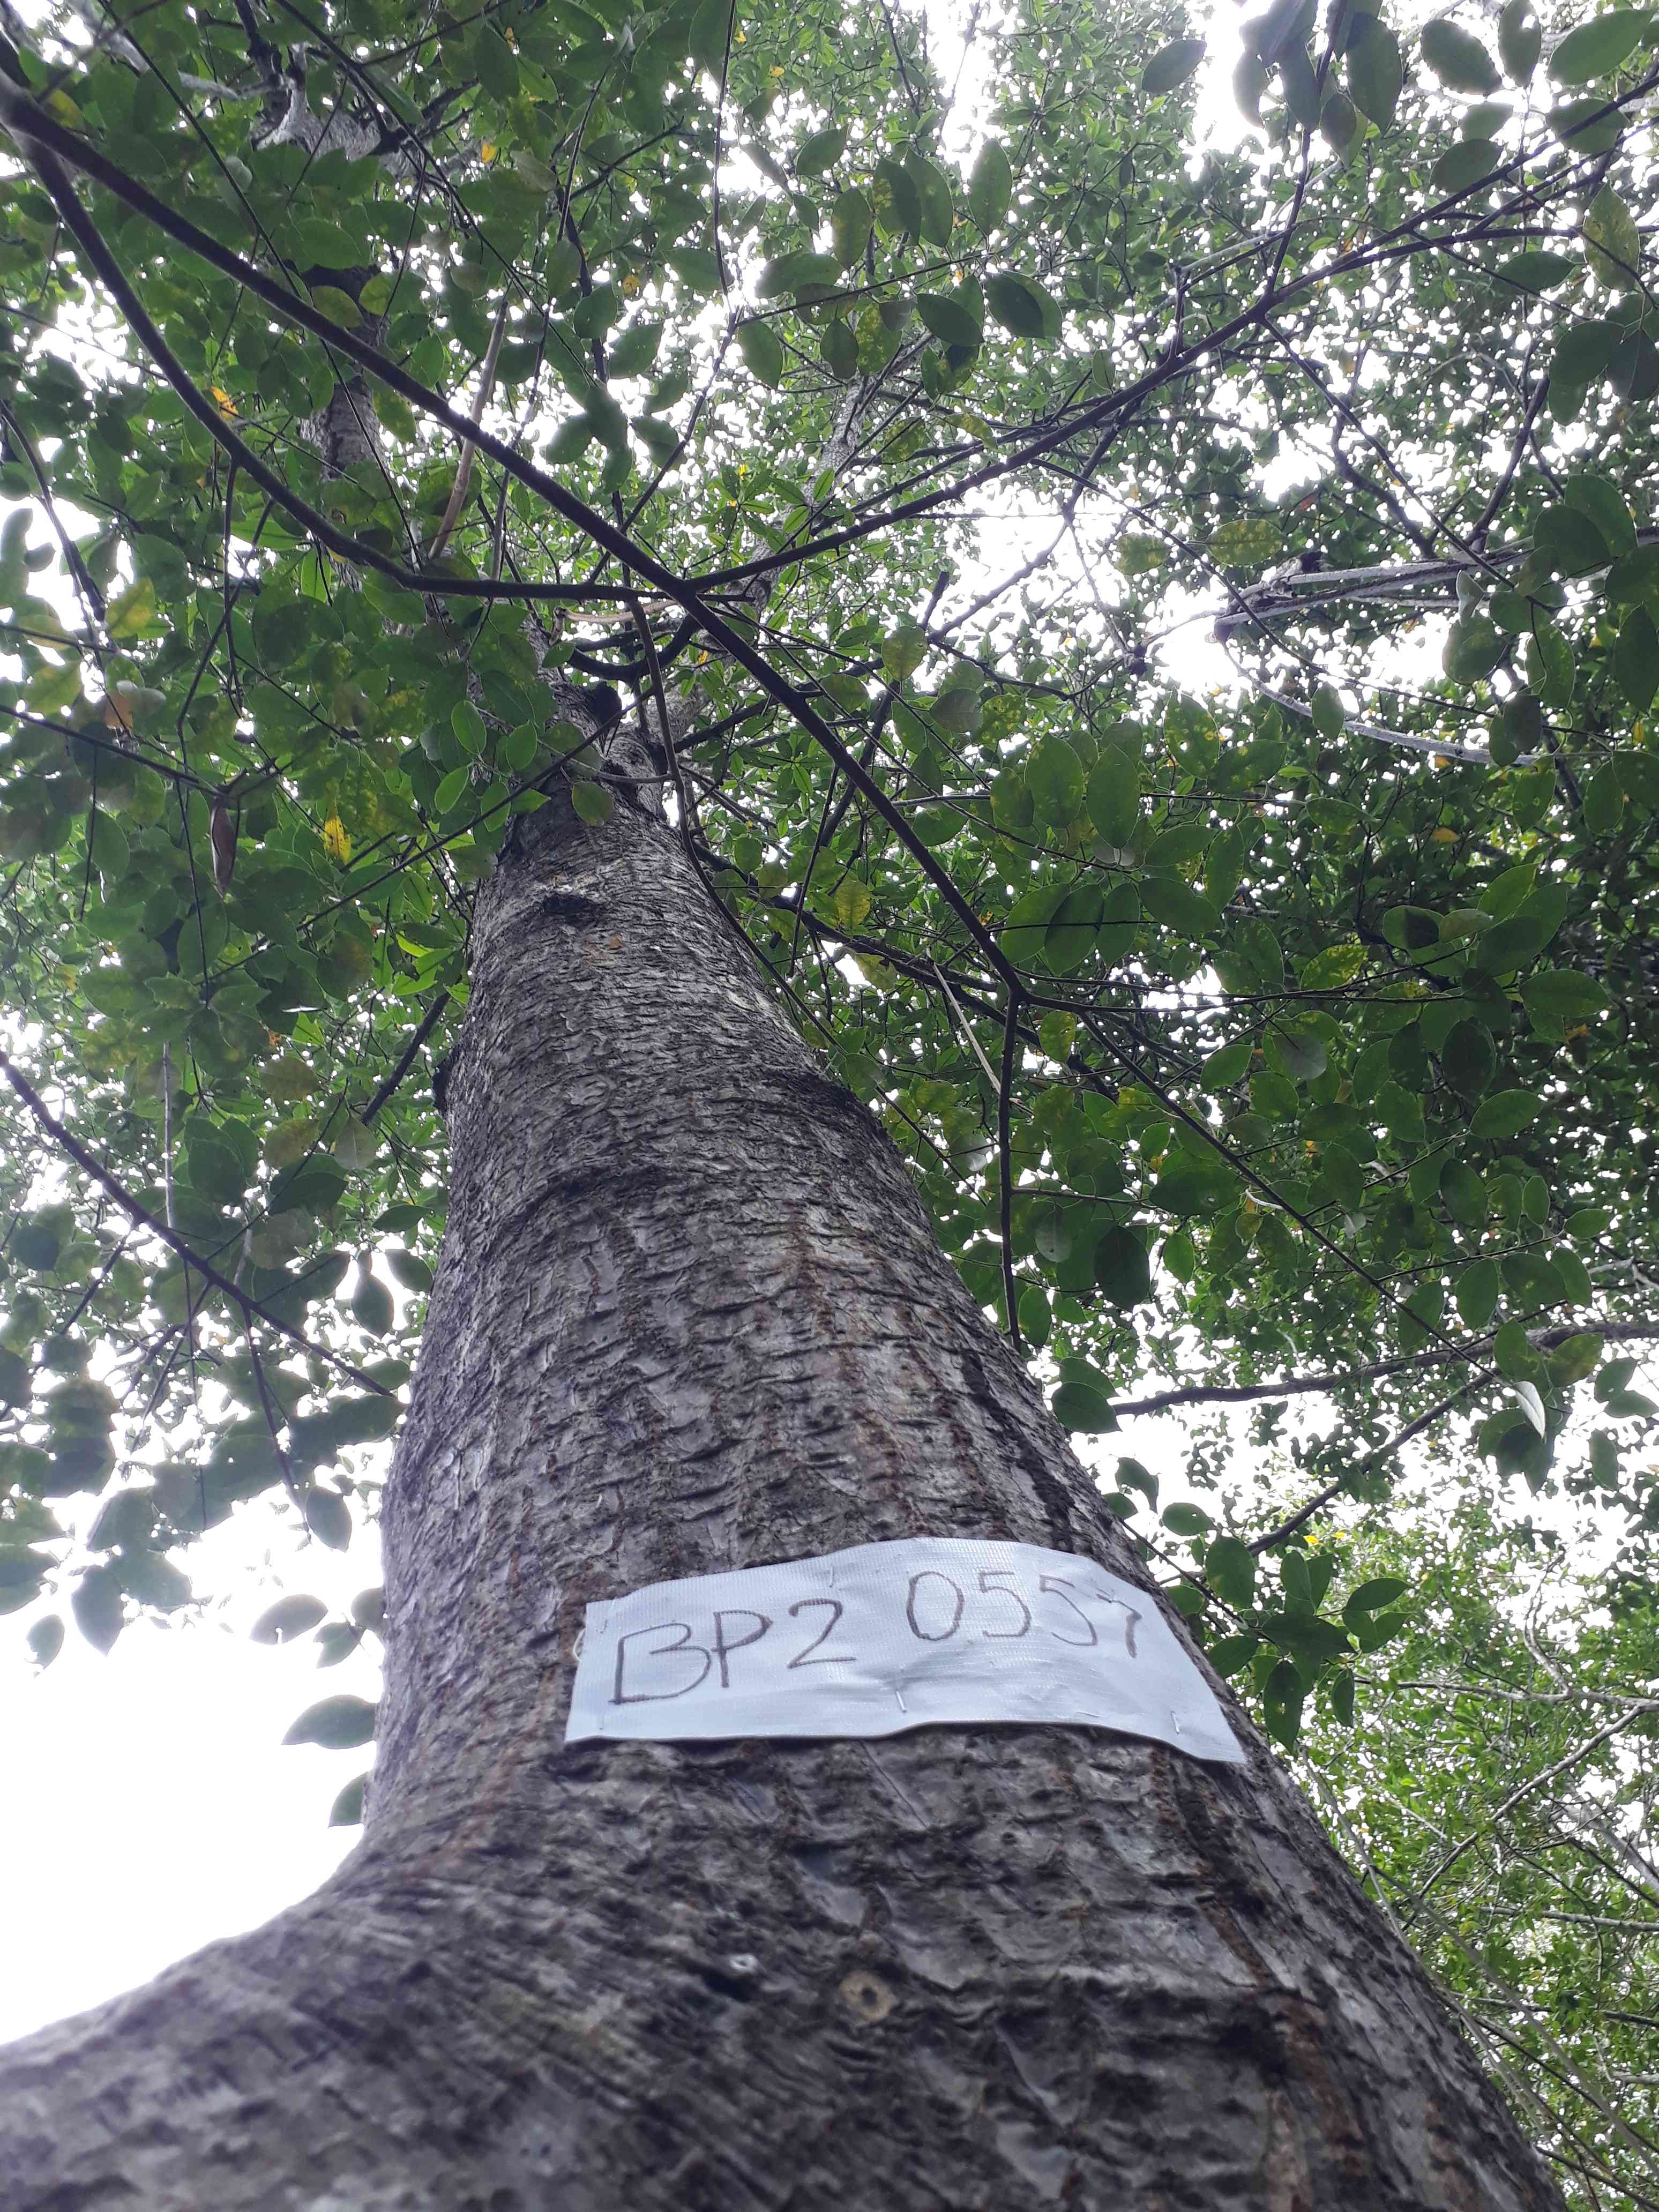 BP2 0557